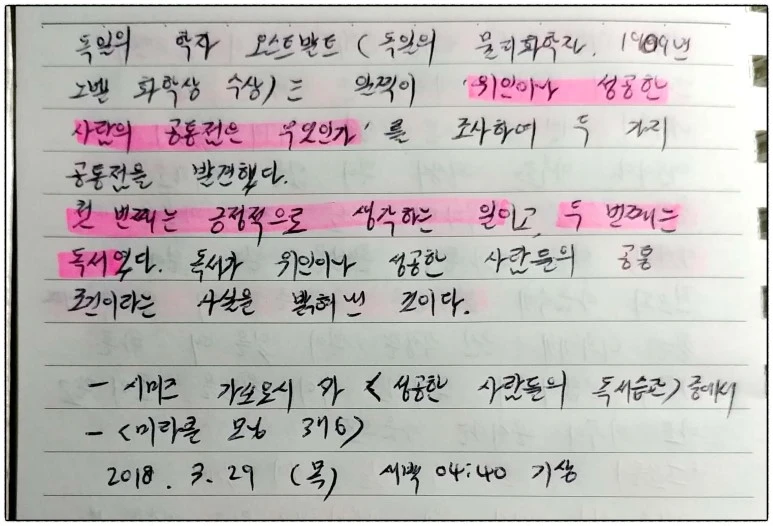 독일의 학자 오스트발트 (독일의 물리화학자. 1909년
노벨 화학상 수상)는 일찍이 '위인이나 성공한
사람의 공통점은 무엇인가'를 조사하여 두 가지
공통점을 발견했다.
첫 번째는 긍정적으로 생각하는 일이고, 두 번째는
독서였다. 독서가 위인이나 성공한 사람들의 공통
조건이라는 사실을 밝혀 낸 것이다.
- 시미즈 가쓰요시 의 <성공한 사람들의 독서습관> 중에서
- <미라클 모닝 376>
2018. 3. 29 (목) 새벽 04:40 기상